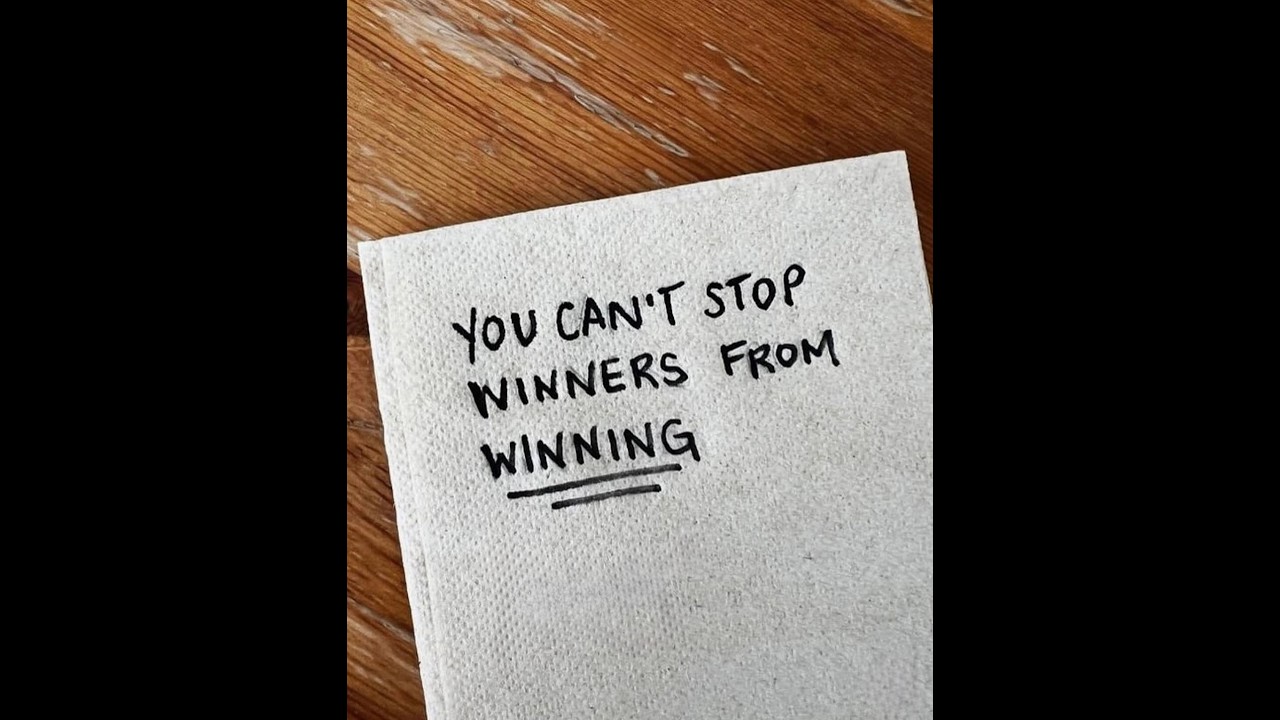 YOU CAN'T STOP
WINNERS FROM
WINNING